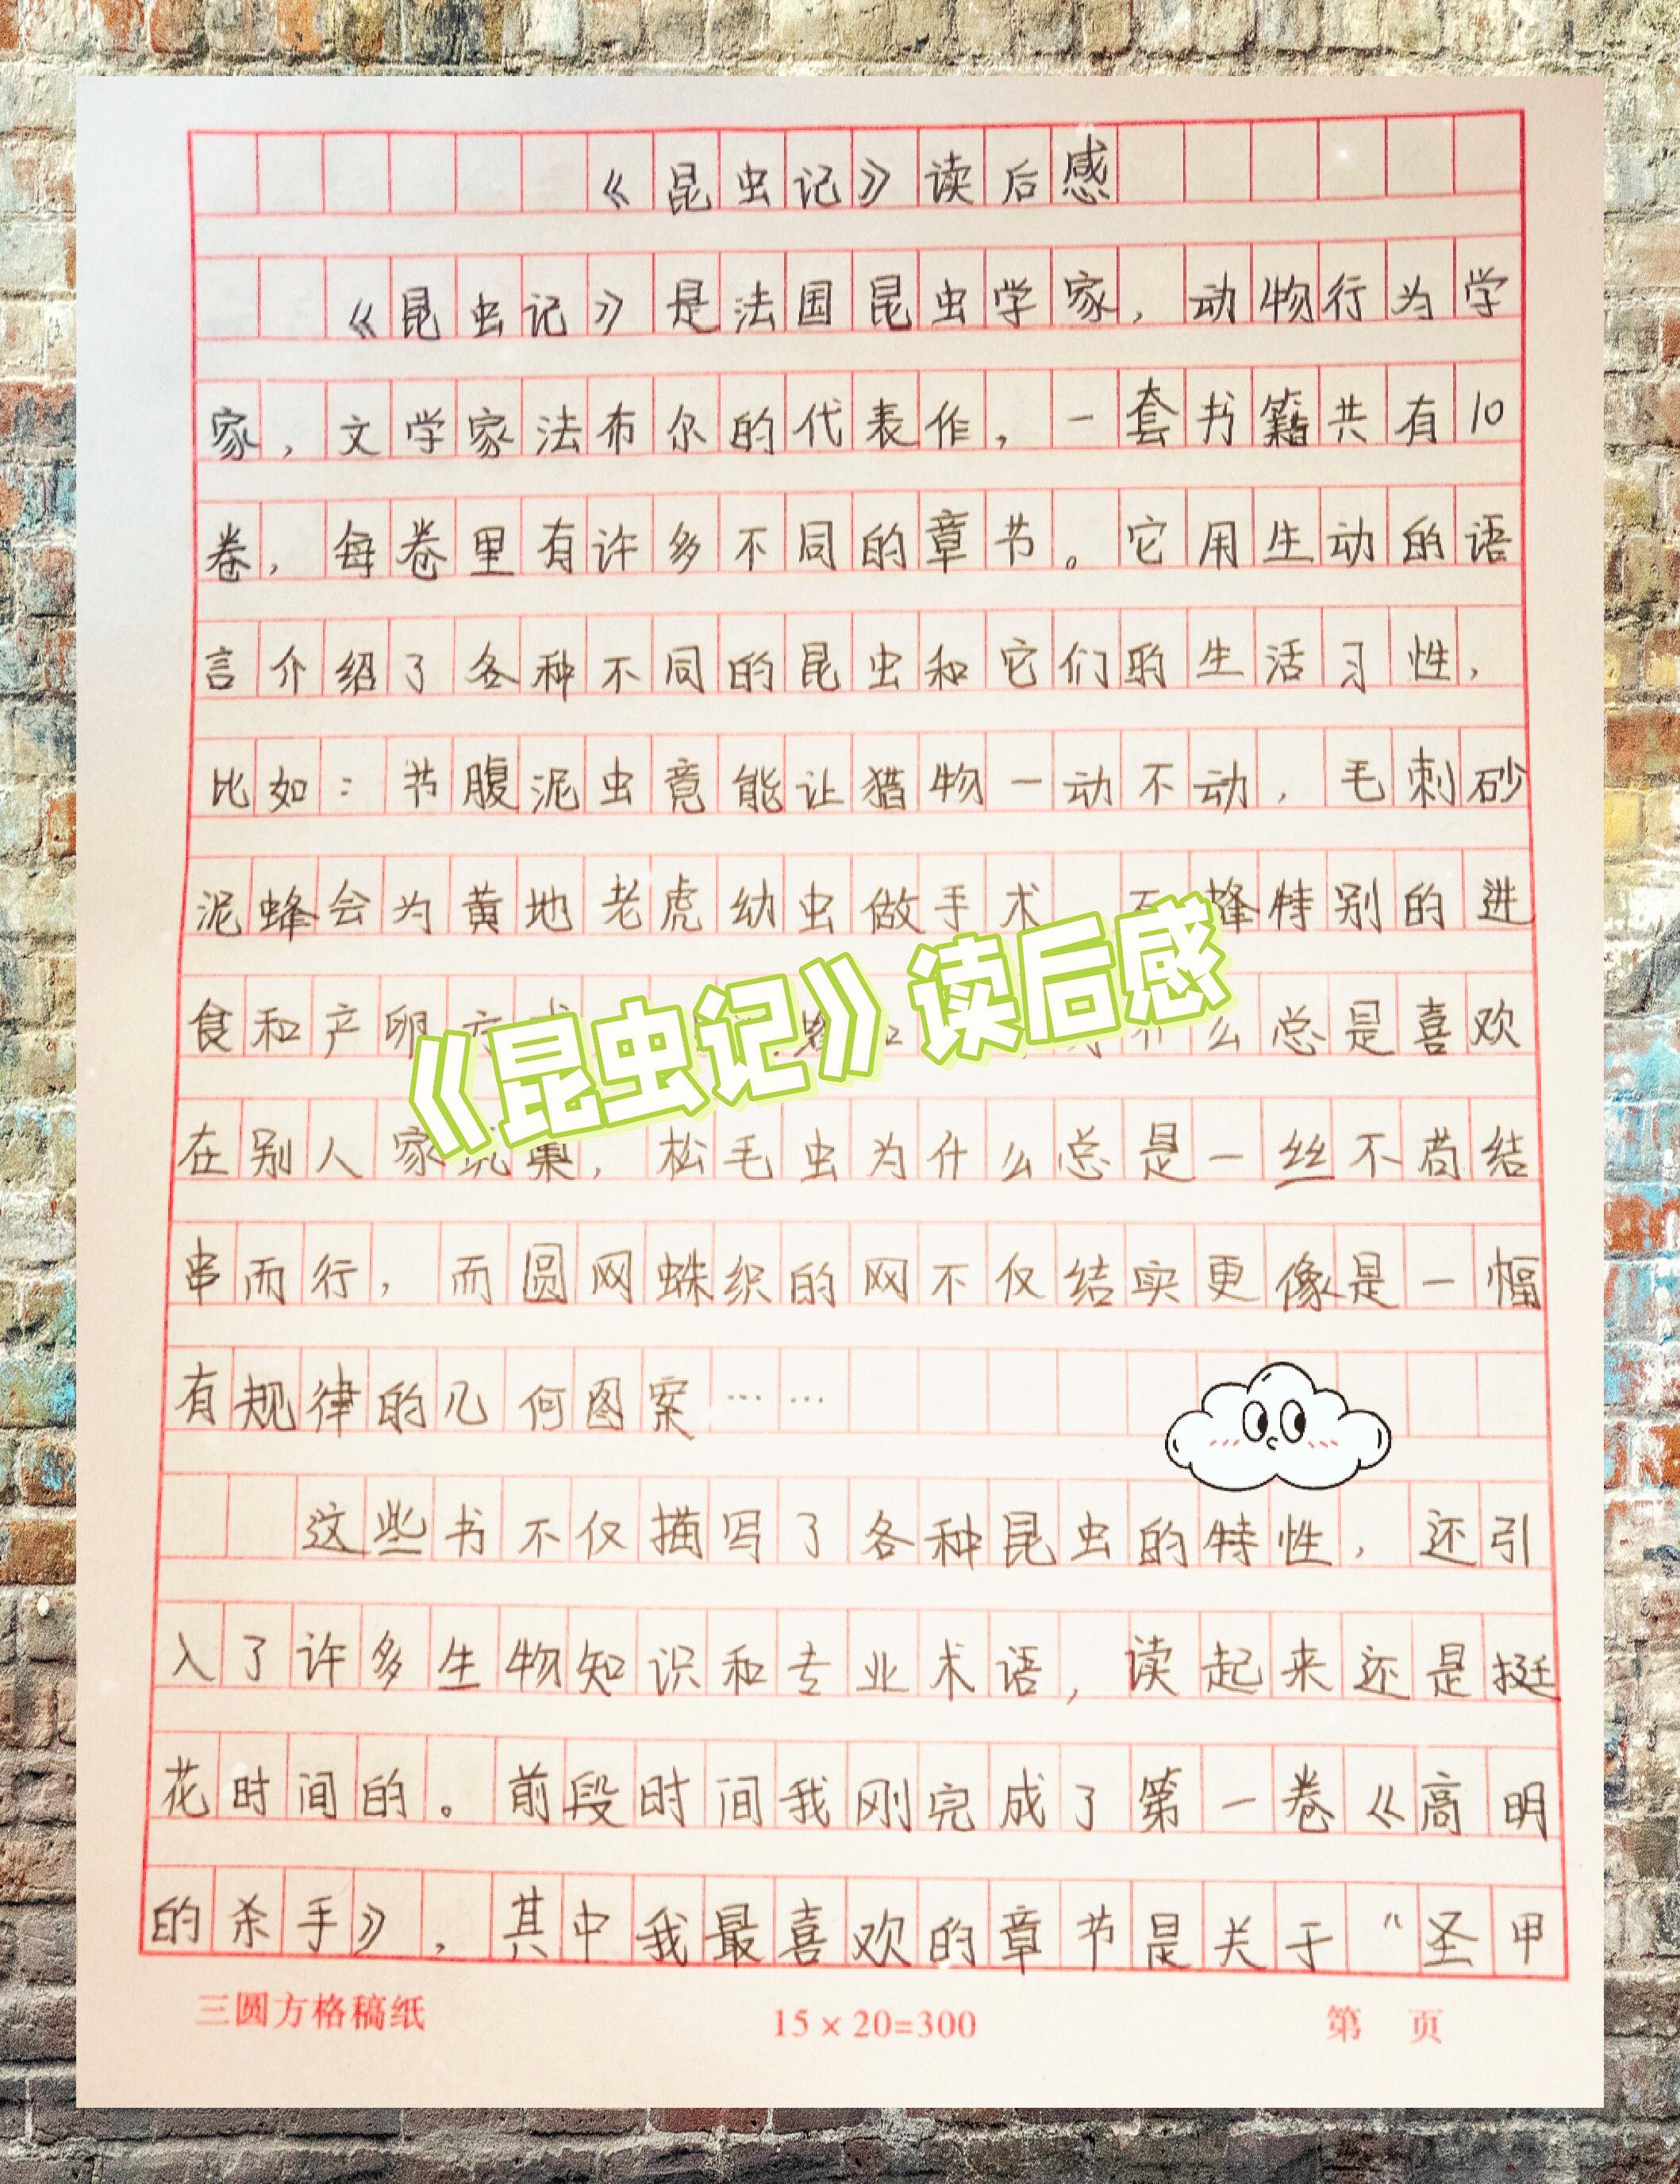 《昆虫记》读后感
《昆虫记》是法国昆虫学家，动物行为学
家，文学家法布尔的代表作，一套书籍共有10
卷，每卷里有许多不同的章节。它用生动的语
言介绍了各种不同的昆虫和它们的生活习性，
比如：节腹泥虫竟能让猎物一动不动，毛刺砂
泥蜂会为黄地老虎幼虫做手术 蜂特别的进
食和产卵方 么总是喜欢
《昆虫记》读后感
在别人家 巢，松毛虫为什么总是一丝不苟结
串而行，而圆网蛛织的网不仅结实更像是一幅
有规律的几何图案……
这些书不仅描写了各种昆虫的特性，还引
入了许多生物知识和专业术语，读起来还是挺
花时间的。前段时间我刚完成了第一卷《高明
的杀手》，其中我最喜欢的章节是关于“圣甲
三圆方格稿纸 15×20=300 第 页